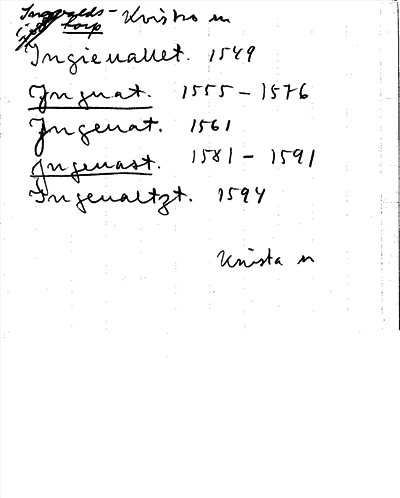 Ingevalds- Knista sn
torp
Ingieuallet. 1549
Inguat. 1555 - 1576
Ingeuat. 1561
Ingeuast. 1581 - 1591
Ingeualtzt. 1594
Knista sn